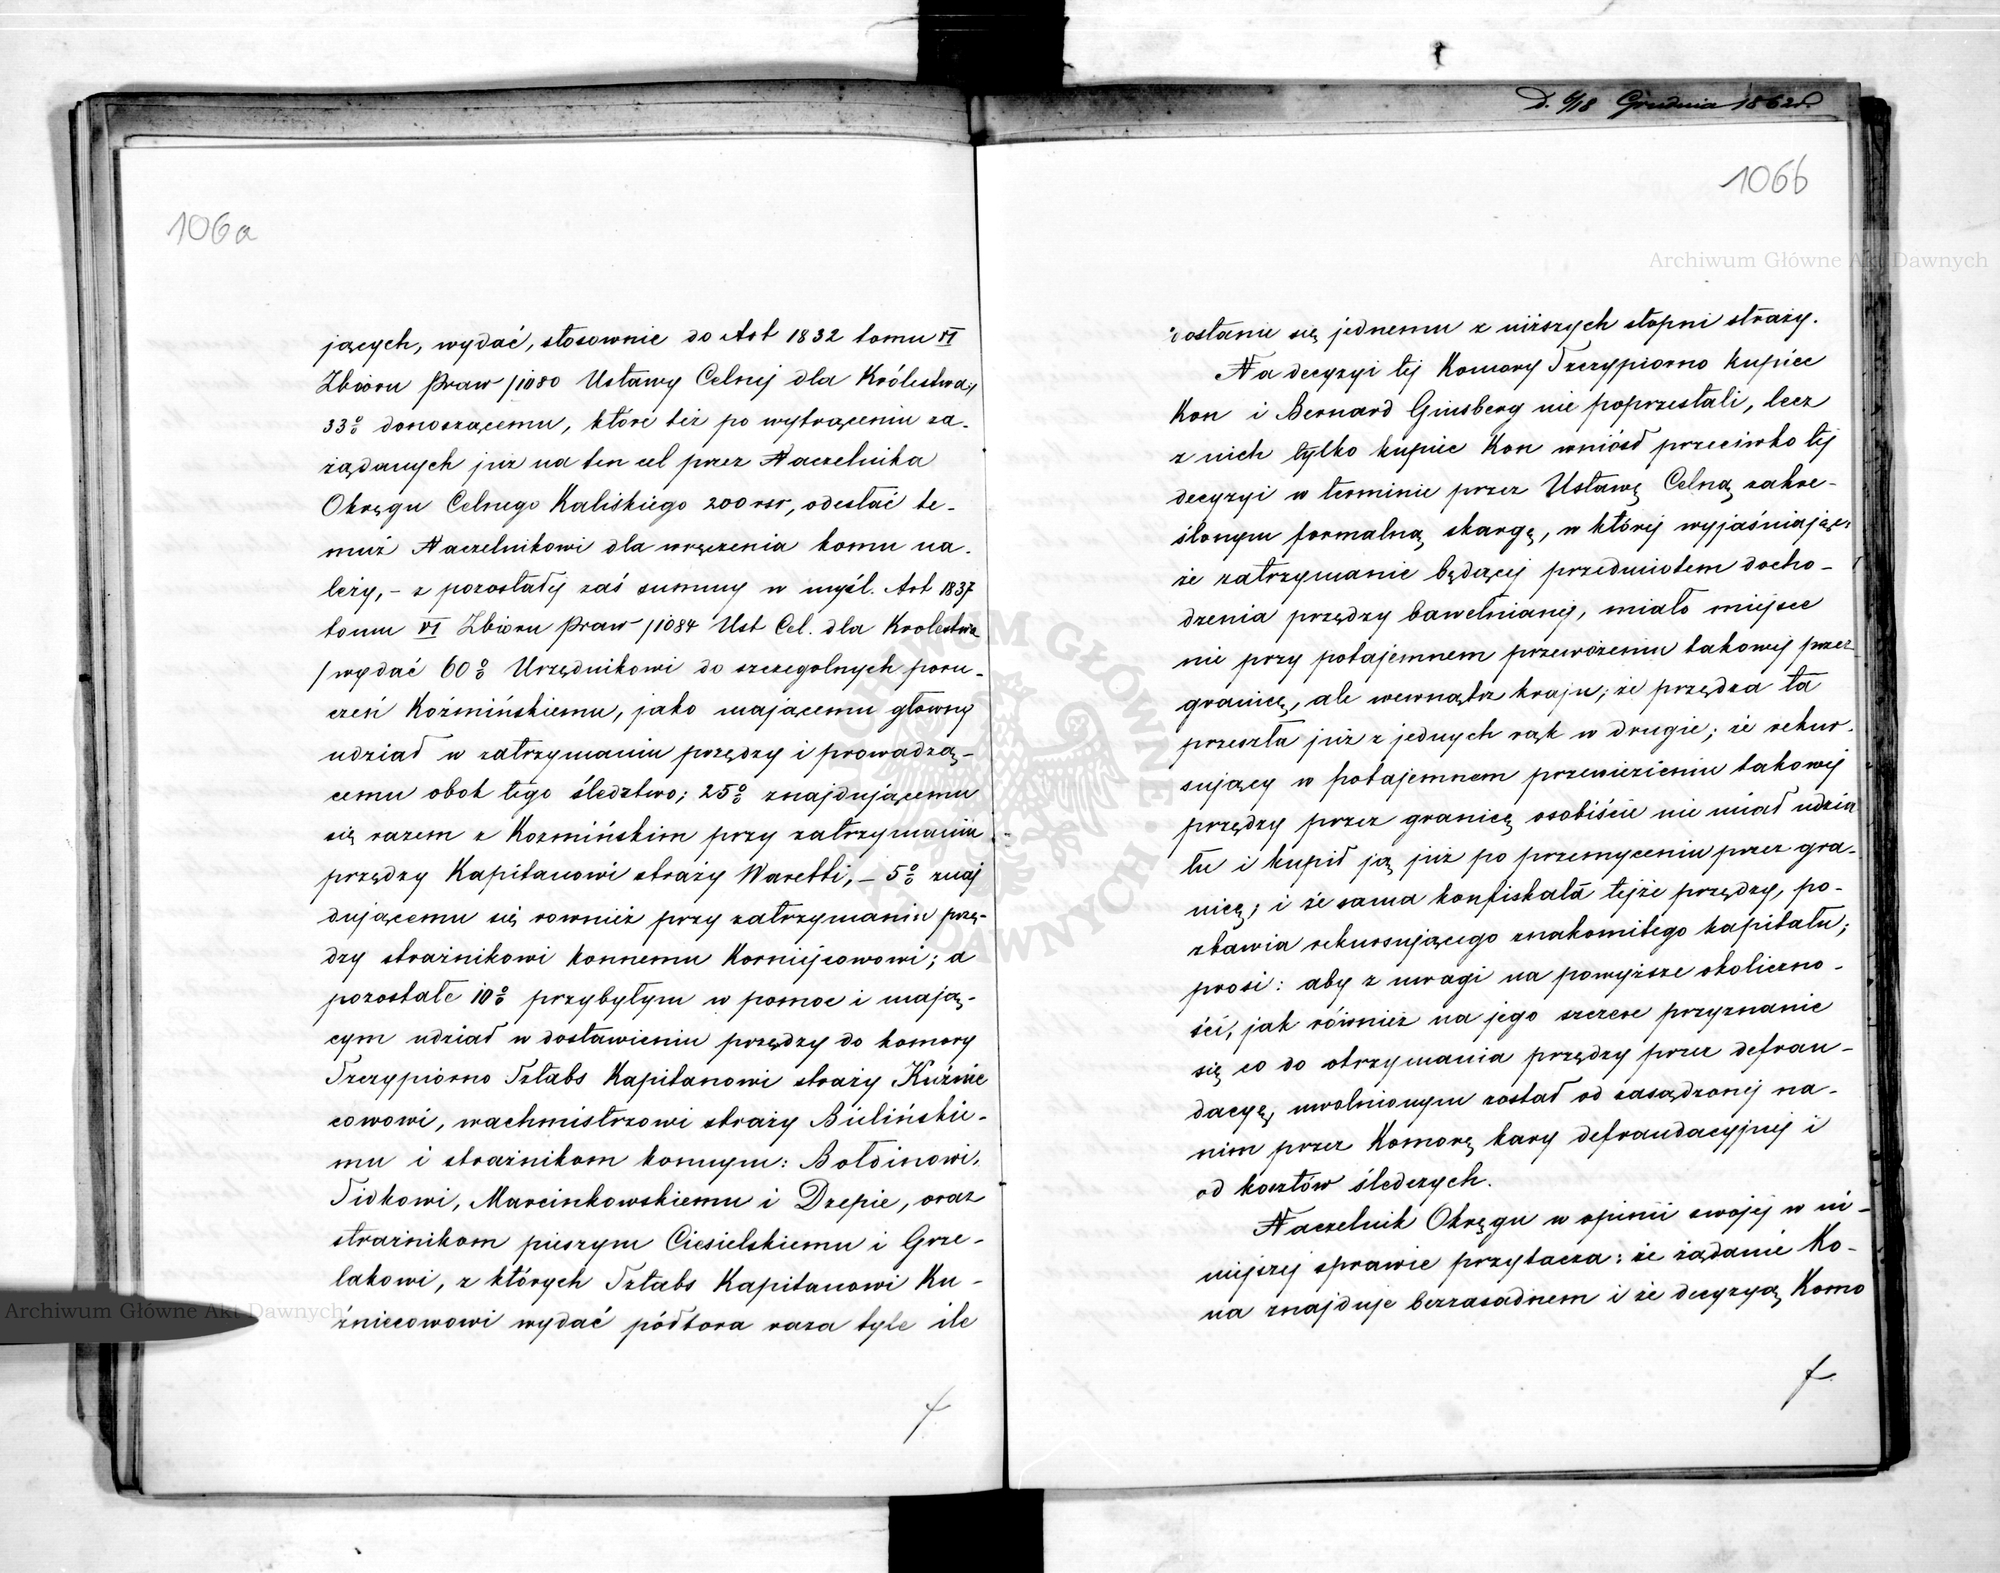 106a
jących, wydać, stosownie do Art 1832 tomu VI
Zbioru Praw /1080 Ustawy Celnej dla Królestwa/
33% donoszącemu, które też po wytrąceniu za-
żądanych już na ten cel przez Naczelnika
Okręgu Celnego Kaliskiego 200 rsr, odesłać te-
muż Naczelnikowi dla wręczenia komu na-
leży, – z pozostałej zaś summy w myśl. Art 1837
tomu VI Zbioru Praw /1084 Ust Cel. dla Krolestwa
/ wydać 60% Urzędnikowi do szczegolnych poru-
czeń Koźmińskiemu, jako mającemu główny
udział w zatrzymaniu przędzy i prowadzą-
cemu obok tego śledztwo; 25% znajdującemu
się razem z Kozmińskim przy zatrzymaniu
przędzy Kapitanowi straży Waretti, – 5% znaj
dującemu się rownież przy zatrzymaniu przę-
dzy strażnikowi konnemu Korniejcowowi; a
pozostałe 10% przybyłym w pomoc i mają-
cym udział w dostawieniu przędzy do komory
Szczypiorno Sztabs Kapitanowi straży Kuźnie
cowowi, wachmistrzowi straży Bielińskie-
mu i strażnikom konnym: Bołdinowi,
Sidkowi, Marcinkowskiemu i Drepie, oraz
strażnikom pieszym Ciesielskiemu i Grze-
lakowi, z których Sztabs Kapitanowi Ku-
źniecowowi wydać półtora raza tyle ile
D. 6/18 Grudnia 1862 r.
106b
dostanie się jednemu z niższych stopni straży.
Na decyzyi tej Komory Szczypiorno kupiec
Kon i Bernard Ginsberg nie poprzestali, lecz
z nich tylko kupiec Kon wniósł przeciwko tej
decyzyi w terminie przez Ustawę Celną zakre-
ślonym formalną skargę, w której wyjaśniając:
że zatrzymanie będącej przedmiotem docho-
dzenia przędzy bawełnianej, miało miejsce
nie przy potajemnem przewożeniu takowej przez
granicę, ale wewnątrz kraju; że przędza ta
przeszła już z jednych rąk w drugie; że rekur-
sujący w potajemnem przewiezieniu takowej
przędzy przez granicę osobiście nie miał udzia
łu i kupił ją już po przemyceniu przez gra-
nicę; i że sama konfiskata tejże przędzy, po-
zbawia rekursującego znakomitego kapitału;
prosi: aby z uwagi na powyższe okoliczno-
ści, jak również na jego szczere przyznanie
się co do otrzymania przędzy przez defrau-
dacyę, uwolnionym został od zasądzonej na-
nim przez Komorę kary defraudacyjnej i
od kosztów śledczych.
Naczelnik Okręgu w opinii swojej w ni-
niejszej sprawie przytacza: że żądanie Ko-
na znajduje bezzasadnem i że decyzyą Komo
Archiwum Główne Akt Dawnych
Archiwum Główne Akt Dawnych
ARCHIWUM GŁÓWNE AKT DAWNYCH